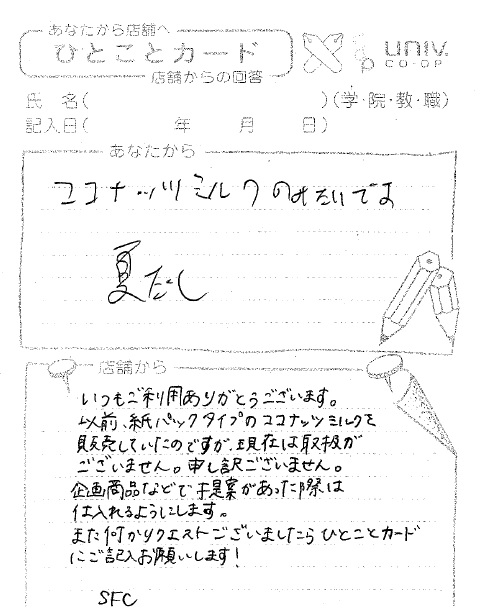 あなたから店舗へ
ひとことカード
店舗からの回答
univ.
CO-OP
氏 名( )(学・院・教・職)
記入日( 年 月 日)
あなたから
ココナッツミルクのみたいです
夏だし
店舗から
いつもご利用ありがとうございます。
以前、紙パックタイプのココナッツミルクを
販売していたのですが、現在は取扱が
ございません。申し訳ございません。
企画商品などで提案があった際は
仕入れるようにします。
また何かリクエストございましたらひとことカード
にご記入お願いします!
SFC